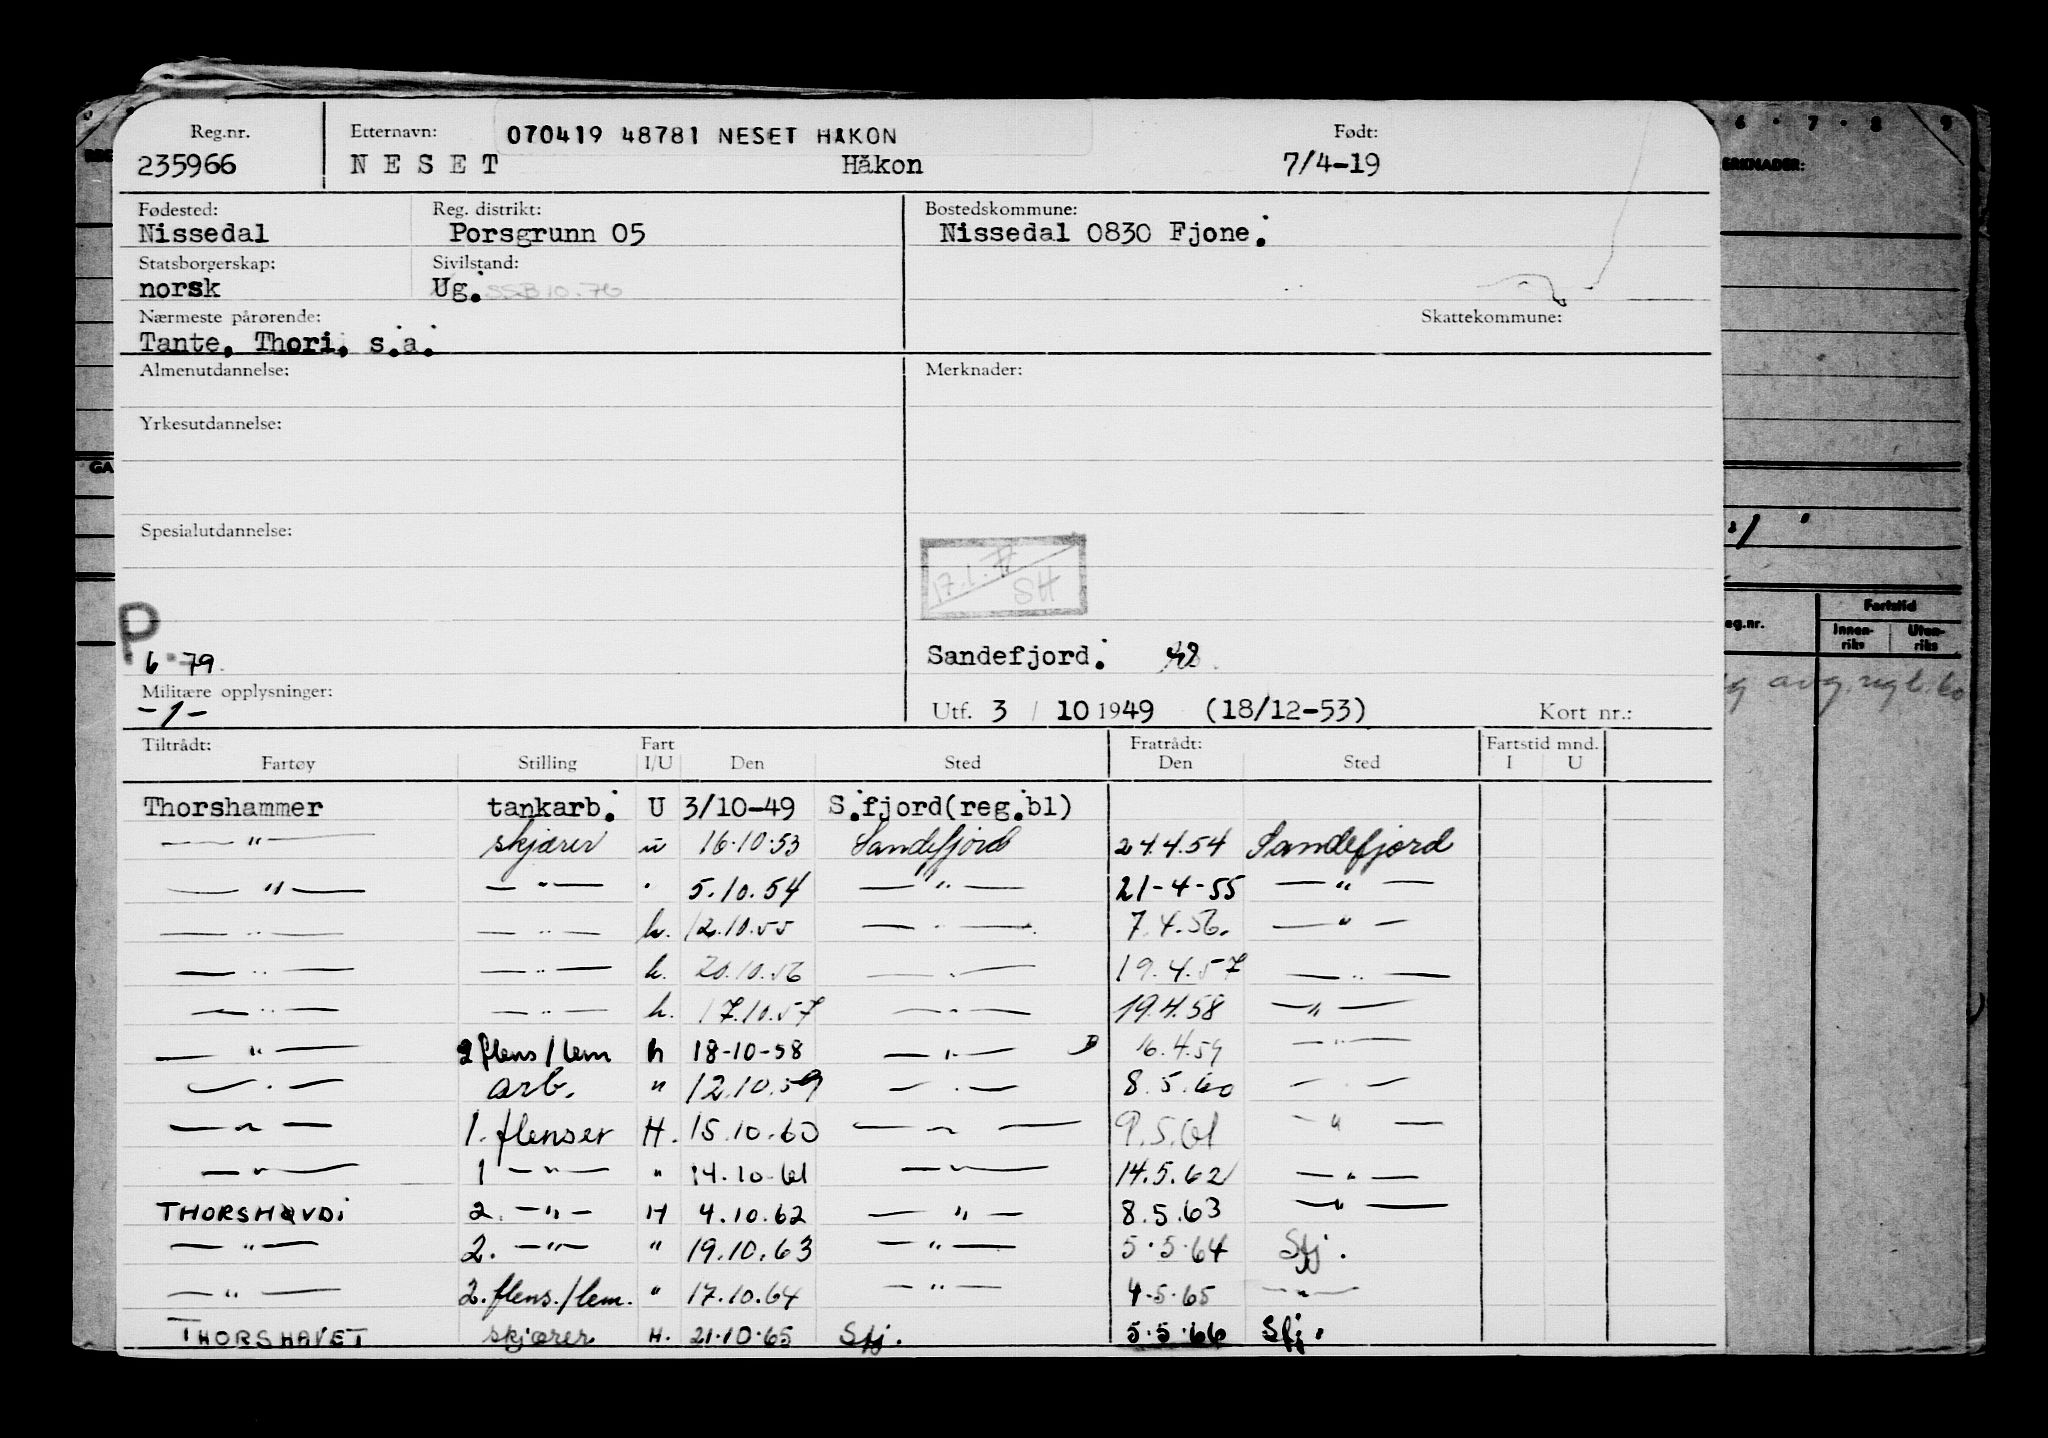 Reg.nr. Etternavn: 070419 48781 NESET HÅKON Født:
235966 NESET Håkon 7/4-19
Fødested: Reg. distrikt: Bostedskommune:
Nissedal Porsgrunn 05 Nissedal 0830 Fjone.
Statsborgerskap: Sivilstand:
norsk Ug. SSB 10.76
Nærmeste pårørende: Skattekommune:
Tante, Thori, s.a.
Almenutdannelse: Merknader:
Yrkesutdannelse:
Spesialutdannelse:
17.1.77
SH
P
6.79.
Sandefjord. 48
Militære opplysninger:
-1-
Utf. 3 / 10 1949 (18/12-53) Kort nr.:
Tiltrådt: Fart Fratrådt: Fartstid mnd.
Fartøy Stilling I/U Den Sted Den Sted I U
Thorshammer tankarb. U 3/10-49 S.fjord(reg.bl)
— " — skjærer u 16.10.53 Sandefjord 24.4.54 Sandefjord
— " — — " — " 5.10.54 — " — 21-4-55 — " —
— " — — " — h. 12.10.55 — " — 7.4.56. — " —
— " — — " — h. 20.10.56 — " — 19.4.57 — " —
— " — — " — h. 17.10.57 — " — 19.4.58 — " —
— " — 2 flens/lem h 18-10-58 — " — 16.4.59 — " —
— " — arb. " 12.10.59 — " — 8.5.60 — " —
— " — 1. flenser H. 15.10.60 — " — 9.5.61 — " —
— " — 1 — " — " 14.10.61 — " — 14.5.62 — " —
THORSHØVDI 2. — " — H 4.10.62 — " — 8.5.63 — " —
— " — 2. — " — " 19.10.63 — " — 5.5.64 Sfj.
— " — 2. flens./lem. " 17.10.64 — " — 4.5.65 — " —
THORSHAVET skjærer H. 21.10.65 Sfj. 5.5.66 Sfj.
6 . 7 . 8 9
ERKNADER:
GA
eg.nr. Fartstid
Innen-riks Uten-riks